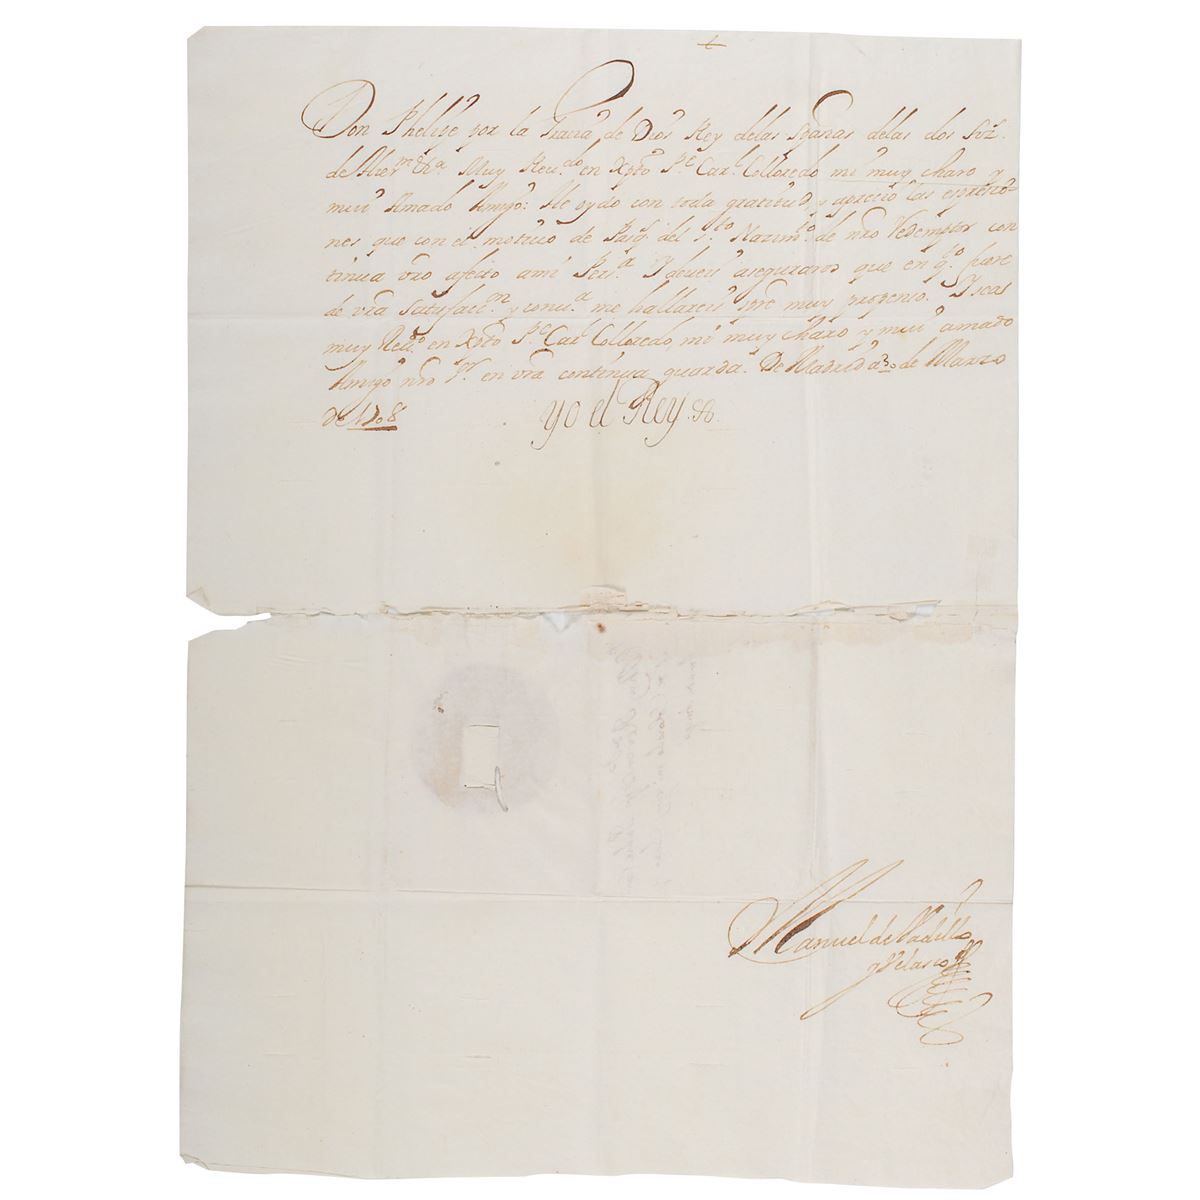 Don Phelipe por la Gracia de Dios Rey delas Spanas delas dos Siz.
de Hierm &ra. Muy Reu.do en Xpto Pe. Car.l Colloredo mi muy charo y
mui Amado Amigo: He oydo con toda gratitud, y aprecio las expresio-
nes que con el motiuo de Pasq. del s.to Nazim.to de nro Redemptor con
tinua vro afecto ami Pers.a Y deueis aseguraros que en q.to fuere
de vra satisfacc.n y conu.a me hallareis spre muy propenso. Y seas
muy Reu.do en Xpto Pe. Car.l Colloredo, mi muy charo y mui amado
Amigo nro Sr. en vra continua guarda. De Madrid a 30 de Marzo
de 1708
yo el Rey
Manuel de Vadillo
y Velasco